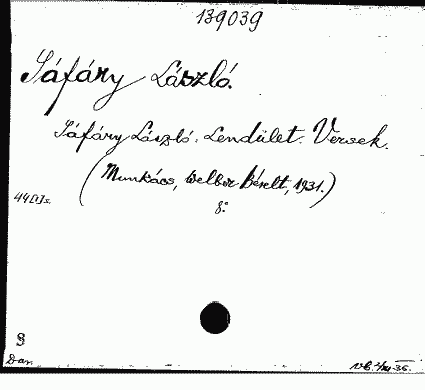 139039
Sáfáry László.
Sáfáry László: Lendület. Versek.
(Munkács, Welber Bérelt, 1931.)
8°
44 [1] s.
§
Dan.